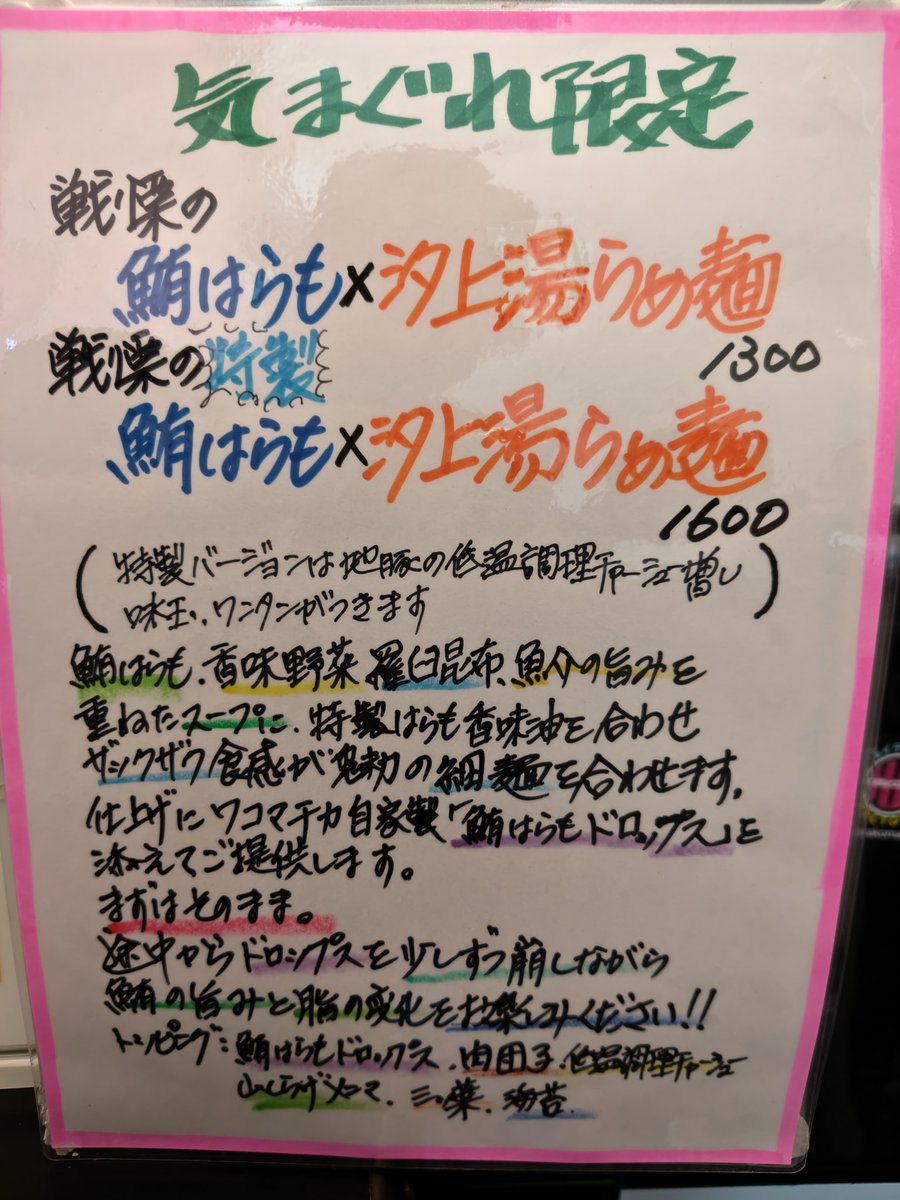 気まぐれ限定
戦慄の
鮪はらも×汐上湯らぁめ麺
1300
戦慄の特製
鮪はらも×汐上湯らぁめ麺
1600
(特製バージョンは地豚の低温調理チャーシュー増し
味玉、ワンタンがつきます)
鮪はらも、香味野菜、羅臼昆布、魚介の旨みを
重ねたスープに、特製はらも香味油を合わせ
ザックザク食感が魅力の細麺を合わせます。
仕上げにワコマチカ自家製「鮪はらもドロップス」を
添えてご提供します。
まずはそのまま。
途中からドロップスを少しずつ崩しながら
鮪の旨みと脂の変化をお楽しみください!!
トッピング:鮪はらもドロップス、肉団子、低温調理チャーシュー
山くらげ、三つ葉、海苔